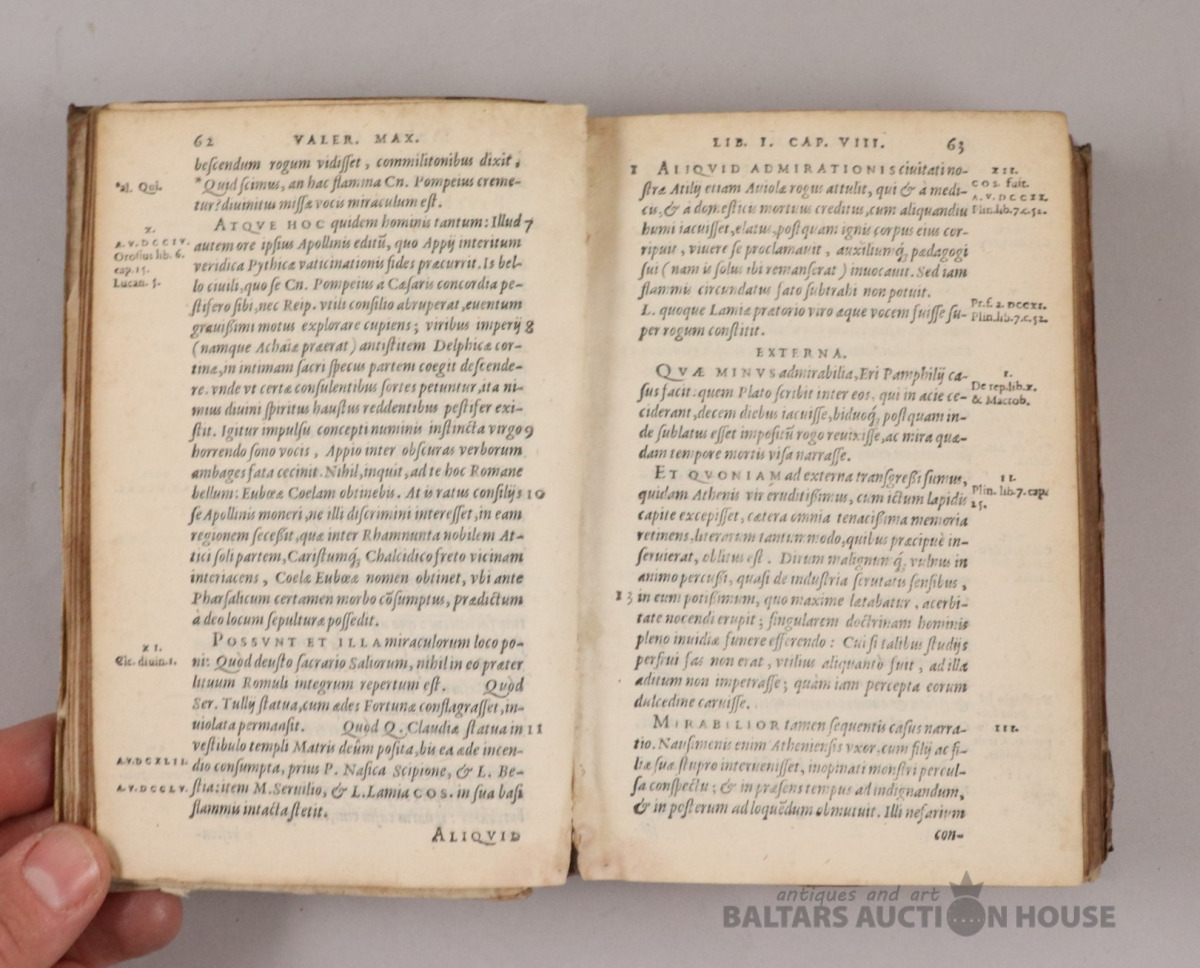 62 VALER. MAX.
bescendum rogum vidisset, commilitonibus dixit,
*al. Qui.
*Quid scimus, an hac flamma Cn. Pompeius creme-
tur? diuinitus missæ vocis miraculum est.
x.
ATQVE HOC quidem hominis tantum: Illud 7
A.V.DCCIV.
autem ore ipsius Apollinis editū, quo Appij interitum
Orosius lib. 6.
cap. 15.
veridica Pythicæ vaticinationis fides præcurrit. Is bel-
Lucan. 5.
lo ciuili, quo se Cn. Pompeius a Cæsaris concordia pe-
stifero sibi, nec Reip. vtili consilio abruperat, euentum
grauißimi motus explorare cupiens; viribus imperij 8
(namque Achaiæ præerat) antistitem Delphicæ cor-
tinæ, in intimam sacri specus partem coegit descende-
re. vnde vt certæ consulentibus sortes petuntur, ita ni-
mius diuini spiritus haustus reddentibus pestifer exi-
stit. Igitur impulsu concepti numinis instincta virgo 9
horrendo sono vocis, Appio inter obscuras verborum
ambages fata cecinit. Nihil, inquit, ad te hoc Romane
bellum: Eubœæ Coelam obtinebis. At is ratus consilijs 10
se Apollinis moneri, ne illi discrimini interesset, in eam
regionem seceßit, quæ inter Rhamnunta nobilem At-
tici soli partem, Caristumq́; Chalcidico freto vicinam
interiacens, Coelæ Eubœæ nomen obtinet, vbi ante
Pharsalicum certamen morbo cōsumptus, prædictum
à deo locum sepulturæ possedit.
XI.
POSSVNT ET ILLA miraculorum loco po-
Cic. diuin. 1.
ni: Quòd deusto sacrario Saliorum, nihil in eo præter
lituum Romuli integrum repertum est. Quòd
Ser. Tullij statua, cum ædes Fortunæ conflagrasset, in-
uiolata permansit. Quòd Q. Claudiæ statua in 11
vestibulo templi Matris deûm posita, bis ea æde incen-
A.V.DCXLII.
dio consumpta, prius P. Nasica Scipione, & L. Be-
A.V.DCCLV.
stia: item M. Seruilio, & L. Lamia COS. in sua basi
flammis intacta stetit.
ALIQVID
LIB. I. CAP. VIII. 63
1 ALIQVID ADMIRATIONIS ciuitati no-
XII.
stræ Atilij etiam Auiolæ rogus attulit, qui & à medi-
COS. fuit.
A.V.DCCXX.
cis, & à domesticis mortuus creditus, cum aliquandiu
Plin. lib. 7. c. 52.
humi iacuisset, elatus, postquam ignis corpus eius cor-
ripuit, viuere se proclamauit, auxiliumq́; pædagogi
sui (nam is solus ibi remanserat) inuocauit. Sed iam
flammis circundatus fato subtrahi non potuit.
L. quoque Lamiæ prætorio viro æque vocem fuisse su-
Pr. f. a. DCCXI.
Plin. lib. 7. c. 52.
per rogum constitit.
EXTERNA.
QVÆ MINVS admirabilia, Eri Pamphilij ca-
I.
sus facit: quem Plato scribit inter eos, qui in acie ce-
De rep. lib. x.
& Macrob.
ciderant, decem diebus iacuisse, biduoq́; postquam in-
de sublatus esset impositū rogo reuixisse, ac mira quæ-
dam tempore mortis visa narrasse.
ET QVONIAM ad externa transgreßi sumus,
II.
quidam Athenis vir eruditißimus, cum ictum lapidis
Plin. lib. 7. cap.
25.
capite excepisset, cætera omnia tenacißima memoria
retinens, literarum tantummodo, quibus præcipuè in-
seruierat, oblitus est. Dirum malignumq́; vulnus in
animo percußi, quasi de industria scrutatis sensibus,
13 in eum potißimum, quo maxime lætabatur, acerbi-
tate nocendi erupit; singularem doctrinam hominis
pleno inuidiæ funere efferendo: Cui si talibus studijs
perfrui fas non erat, vtilius aliquantò fuit, ad illa
aditum non impetrasse; quàm iam percepta eorum
dulcedine caruisse.
MIRABILIOR tamen sequentis casus narra-
III.
tio. Nausimenis enim Atheniensis vxor, cum filij ac fi-
liæ suæ stupro interuenisset, inopinati monstri percul-
sa conspectu; & in præsens tempus ad indignandum,
& in posterum ad loquēdum obmutuit. Illi nefarium
con-
antiques and art
BALTARS AUCTION HOUSE